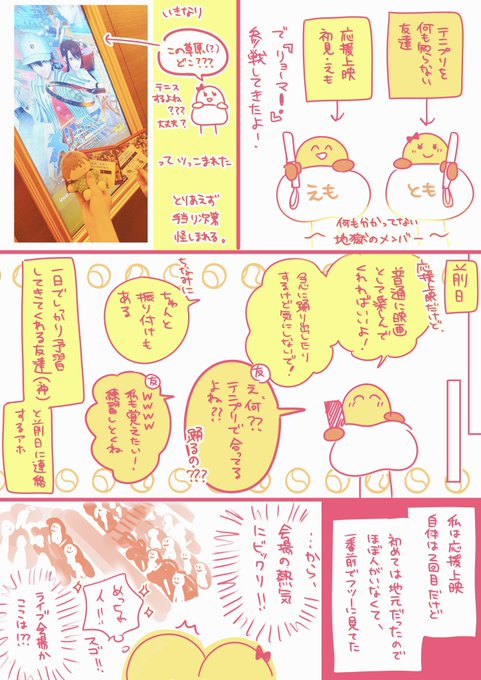 テニプリを
何も知らない
友達
応援上映
初見・えも
で『リョーマ!』に
参戦してきたよー!
えも
とも
何も分かってない
〜地獄のメンバー〜
いきなり
この草原(?)
どこ???
テニス
するよね
???
大丈夫?
ってツッこまれた
とりあえず
手当り次第
怪しまれる。
前日
応援上映だけど、
普通に映画
として楽しんで
くれればいいよ!
急に踊り出したり
するけど気にしないで!
え、何??
テニプリで合ってる
よね??
踊るの???
友
ちなみに
ちゃんと
振り付けも
ある
友
wwww
私も覚えたい!
練習しとくね
一日でしっかり予習
してきてくれる友達(神)
と前日に連絡
するアホ
私は応援上映
自体は2回目だけど
初めては地元だったので
ほぼ人がいなくて、
一番前でフツーに見てた
…から、
会場の熱気
にビックリ!!
めっちゃ
イー!!
スゴ!!
ライブ会場か
ここは!??